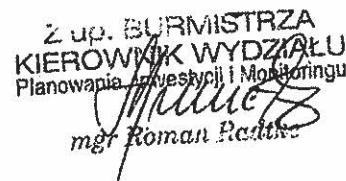 Z up. BURMISTRZA
KIEROWNIK WYDZIAŁU
Planowania Inwestycji i Monitoringu
mgr Roman Radtke